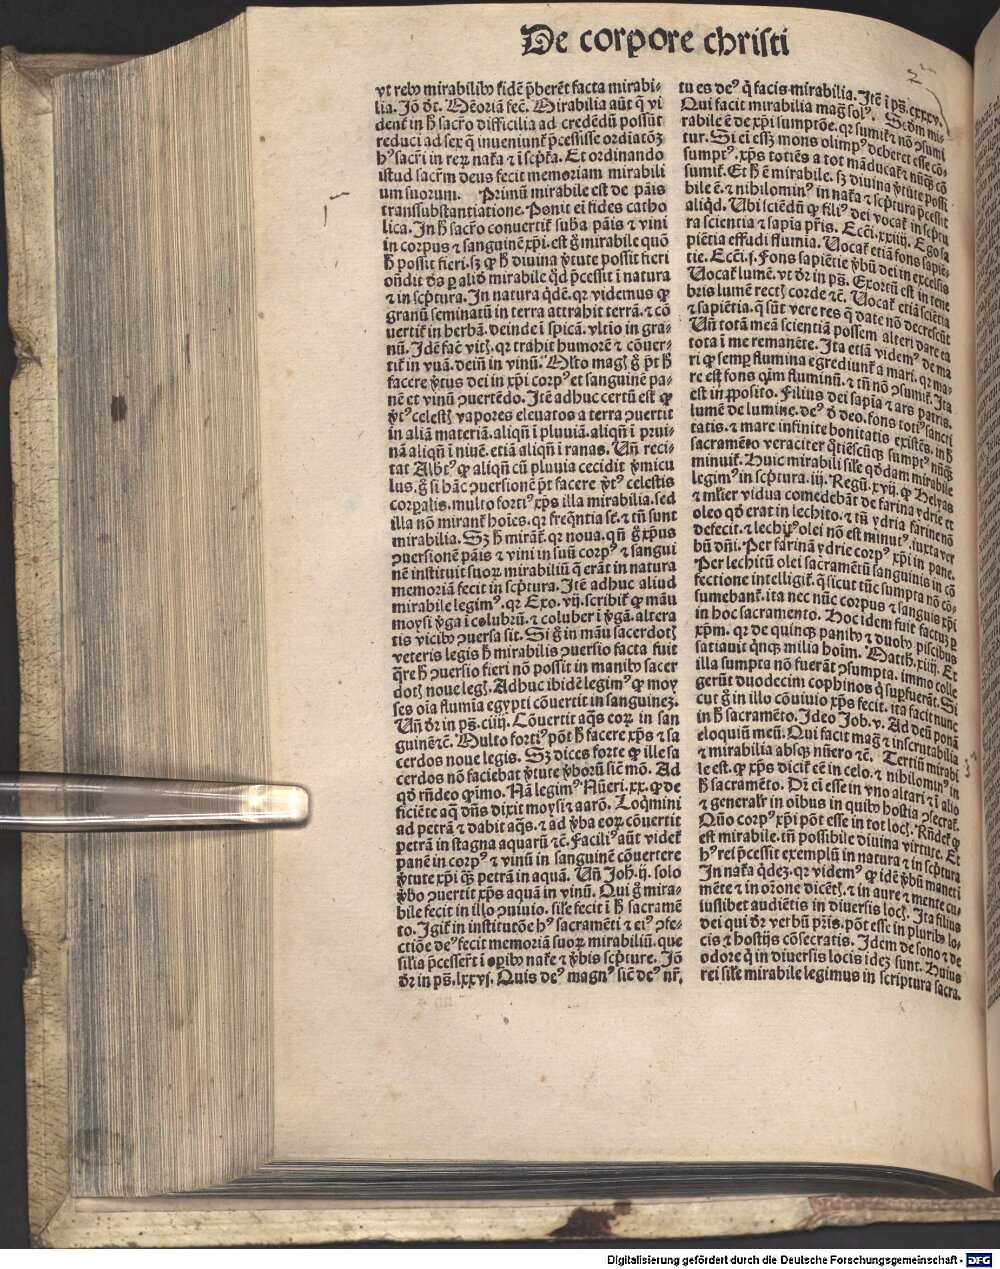 De corpore christi
vt rebꝰ mirabilibꝰ fidē p̄berēt facta mirabi-
lia. Jō dt. Mēoriā fec̄. Mirabilia aūt q̄ vi
dent̄ in h̄ sacr̄o difficilia ad credēdū possūt
reduci ad sex q̄ inueniunt̄ p̄cessisse ordiatōȝ
hꝰ sacr̄i in reꝝ nat̄a ⁊ i scp̄t̄a. Et ordinando
istud sacr̄m deus fecit memoriam mirabili
um suorum. Primū mirabile est de pāis
transsubstantiatione. Ponit ei fides catho
lica. In h̄ sacr̄o conuertit̄ sub̄a pāis ⁊ vini
in corpus ⁊ sanguinē xp̄i. est ḡ mirabile quō
h̄ possit fieri. sȝ ꝙ h̄ diuina v̄tute possit fieri
on̄dit̄ ds̄ ꝑ aliō mirabile qd̄ p̄cessit i natura
⁊ in scp̄tura. In natura qdē. qꝛ videmus ꝙ
granū seminatū in terra attrahit terrā. ⁊ cō
uertit̄ in herbā. deinde i spicā. vltio in gra-
nū. Idē fac̄ vitꝭ. qꝛ trahit humorē ⁊ cōuer-
tit̄ in vuā. deīn in vinū. Mlto magꝭ ḡ p̄t h̄
facere v̄tus dei in xp̄i corpꝰ et sanguinē pa-
nē et vinū ꝯuertēdo. Itē adhuc certū est ꝙ
v̄tꝰ celestꝭ vapores eleuatos a terra ꝯuertit
in aliā materiā. aliqn̄ i pluuiā. aliqn̄ i prui-
nā aliqn̄ i niuē. etiā aliqn̄ i ranas. Un̄ reci-
tat Albtꝰ ꝙ aliqn̄ cū pluuia cecidit v̄micu
lus. ḡ si hāc ꝯuersionē p̄t facere v̄tꝰ celestis
corꝑalis. multo fortiꝰ xp̄s illa mirabilia. sed
illa nō mirant̄ hoīes. qꝛ freq̄ntia st̄. ⁊ tn̄ sunt
mirabilia. Sȝ h̄ mirāt̄. qꝛ noua. qn̄ ḡ xp̄us
ꝯuersionē pāis ⁊ vini in suū corpꝰ ⁊ sangui
nē instituit suoꝝ mirabiliū q̄ erāt in natura
memoriā fecit in scp̄tura. Itē adhuc aliud
mirabile legimꝰ. qꝛ Exo. vij. scribit̄ ꝙ māu
moysi v̄ga i colubrū. ⁊ coluber i v̄gā. altera
tis vicibꝰ ꝯuersa sit. Si ḡ in māu sacerdotꝭ
veteris legis h̄ mirabilis ꝯuersio facta fuit
q̄re h̄ ꝯuersio fieri nō possit in manibꝰ sacer
dotꝭ noue legꝭ. Adhuc ibidē legimꝰ ꝙ moy
ses oīa flumia egypti cōuertit in sanguineȝ.
Un̄ dr̄ in ps̄. ciiij. Cōuertit aq̄s eoꝝ in san
guinē ⁊c̄. Multo fortiꝰ pōt h̄ facere xp̄s ⁊ sa
cerdos noue legis. Sȝ dices forte ꝙ ille sa
cerdos nō faciebat v̄tute v̄borū siē mō. Ad
qd̄ rn̄deo ꝙ imo. Nā legimꝰ Nūeri. xx. ꝙ de
ficiēte aq̄ dn̄s dixit moysi ⁊ aarō. Loq̄mini
ad petrā ⁊ dabit aq̄s. ⁊ ad v̄ba eoꝝ cōuertit
petrā in stagna aquarū ⁊c̄. Faciliꝰ aūt videt̄
panē in corpꝰ ⁊ vinū in sanguinē cōuertere
v̄tute xp̄i qꝫ petrā in aquā. Un̄ Joh. ij. solo
v̄bo ꝯuertit xp̄s aquā in vinū. Qui ḡ mira-
bile fecit in illo ꝯuiuio. sil̄e fecit i h̄ sacramē
to. Igit̄ in institutōe hꝰ sacramēti ⁊ eiꝰ ꝓfe-
ctiōe deꝰ fecit memoriā suoꝝ mirabiliū. que
sil̄ia p̄cesser̄t i oꝑibꝰ nat̄e ⁊ v̄bis scp̄ture. Jō
dr̄ in ps̄. lxxvj. Quis deꝰ magnꝰ siē deꝰ nr̄,
tu es deꝰ q̄ facis mirabilia. Itē i ps̄. cxxxv.
Qui facit mirabilia maḡ solꝰ. Scd̄m mi-
rabile ē de xp̄i sumptōe. qꝛ sumit̄ ⁊ nō ꝯsumi
tur. Si ei esȝ mons olimpꝰ deberet esse cō-
sumptꝰ. xp̄s totiēs a tot māducat̄ ⁊ nūqꝫ cō
sumit̄. Et h̄ ē mirabile. sȝ diuina v̄tute possi
bile ē. ⁊ nibilominꝰ in nat̄a ⁊ scp̄tura p̄cessit
aliqd̄. Ubi sciēdū ꝙ filiꝰ dei vocat̄ in scp̄tu
ra scientia ⁊ sapīa pr̄is. Ecci. xxiiij. Ego sa
piētia effudi flumia. Uocat̄ etiā fons sapiē-
tie. Ecci. j. Fons sapiētie v̄bū dei in excelsis
Uocat̄ lumē. vt dr̄ in ps̄. Exortū est in tene
bris lumē rectꝭ corde ⁊c̄. Uocat̄ etiā sciētia
⁊ sapiētia. q̄ sūt vere res q̄ date nō decrescūt
Un̄ totā meā scientiā possem alteri dare ⁊ a
tota i me remanēte. Ita etiā videmꝰ de ma
ri ꝙ semꝑ flumina egrediunt̄ a mari. qꝛ ma-
re est fons qꝛīm fluminū. ⁊ tn̄ nō ꝯsumit̄. Ita
est in ꝓposito. Filius dei sapīa ⁊ ars patris.
lumē de lumine. deꝰ d̄ deo. fons totiꝰ sancti
tatis. ⁊ mare infinite bonitatis existēs. in h̄
sacramēto veraciter q̄tiēscūqꝫ sumptꝰ nūqꝫ
minuit̄. Huic mirabili sil̄e qd̄dam mirabile
legimꝰ in scp̄tura. iij. Regū. xvij. ꝙ Helyas
⁊ ml̄ier vidua comedebāt de farina ydrie et
oleo qd̄ erat in lechito. ⁊ tn̄ ydria farine nō
defecit. ⁊ lechitꝰ olei nō est minutꝰ. iuxta ver
bū dn̄i. Per farinā ydrie corpꝰ xp̄i in pane.
Per lechitū olei sacramētū sanguinis in cō
fectione intelligit̄. q̄ sicut tūc sumpta nō cō-
sumebant̄. ita nec nūc corpus ⁊ sanguis xp̄i
in hoc sacramento. Hoc idem fuit factuȝ ꝑ
xp̄m. qꝛ de quinqꝫ panibꝰ ⁊ duobꝰ piscibus
satiauit q̄nqꝫ milia hoīm. Matth. xiiij. Et
illa sumpta nō fuerāt ꝯsumpta. immo colle
gerūt duodecim cophinos q̄ suꝑfuerāt. Si
cut ḡ in illo cōuiuio xp̄s fecit. ita facit nunc
in h̄ sacramēto. Ideo Job. v. Ad deū ponā
eloquiū meū. Qui facit maḡ ⁊ inscrutabilia
⁊ mirabilia absqꝫ nūero ⁊c̄. Tertiū mirabi
le est. ꝙ xp̄s dicit̄ cē in celo. ⁊ nibilominꝰ in
h̄ sacramēto. Dr̄ ei esse in vno altari ⁊ i alio
⁊ general̄r in oībus in quibꝰ hostia ꝯsecrat̄.
Quō corpꝰ xp̄i pōt esse in tot locꝭ. Rn̄det̄ ꝙ
est mirabile. tn̄ possibile diuina virtute. Et
hꝰ rei p̄cessit exemplū in natura ⁊ in scp̄tura
In nat̄a qdeȝ. qꝛ videmꝰ ꝙ idē v̄bū manet i
mēte ⁊ in or̄one dicētꝭ. ⁊ in aure ⁊ mente cu-
iuslibet audiētis in diuersis locꝭ. Ita filius
dei qui dr̄ verbū pr̄is. pōt esse in pluribꝰ lo-
cis ⁊ hostijs cōsecratis. Idem de sono ⁊ de
odore q̄ in diuersis locis ideȝ sunt. Huius
rei sil̄e mirabile legimus in scriptura sacra.
Digitalisierung gefördert durch die Deutsche Forschungsgemeinschaft - DFG